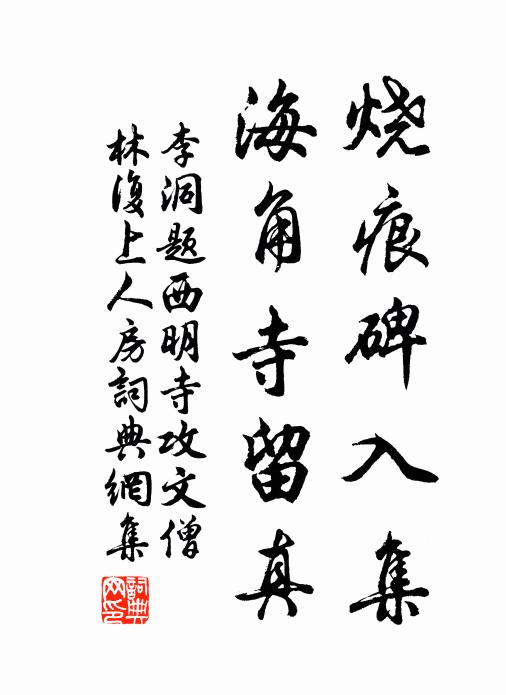 烧痕碑入集
海角寺留真
李洞题西明寺攻文僧
林复上人房詞典網集
詞典网印